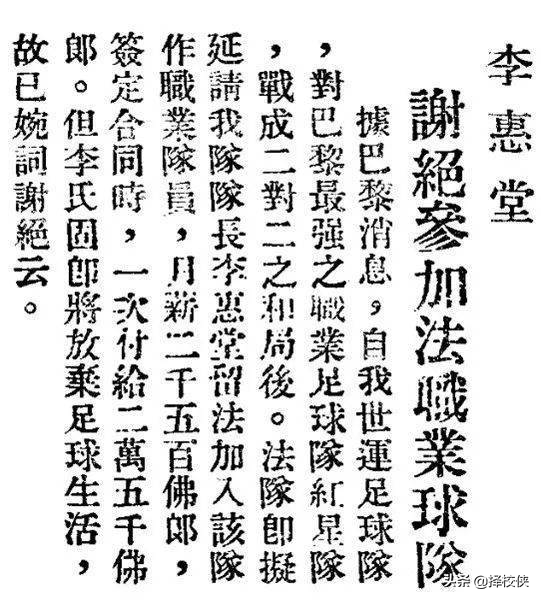 李惠堂
謝絕參加法職業球隊
據巴黎消息，自我世運足球隊
，對巴黎最强之職業足球隊紅星隊
，戰成二對二之和局後。法隊卽擬
延請我隊隊長李惠堂留法加入該隊
作職業隊員，月薪二千五百佛郎，
簽定合同時，一次付給二萬五千佛
郎。但李氏因卽將放棄足球生活，
故已婉詞謝絕云。
头条 @择校侠